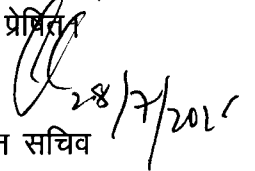 प्रेषित।
28/7/202
सचिव